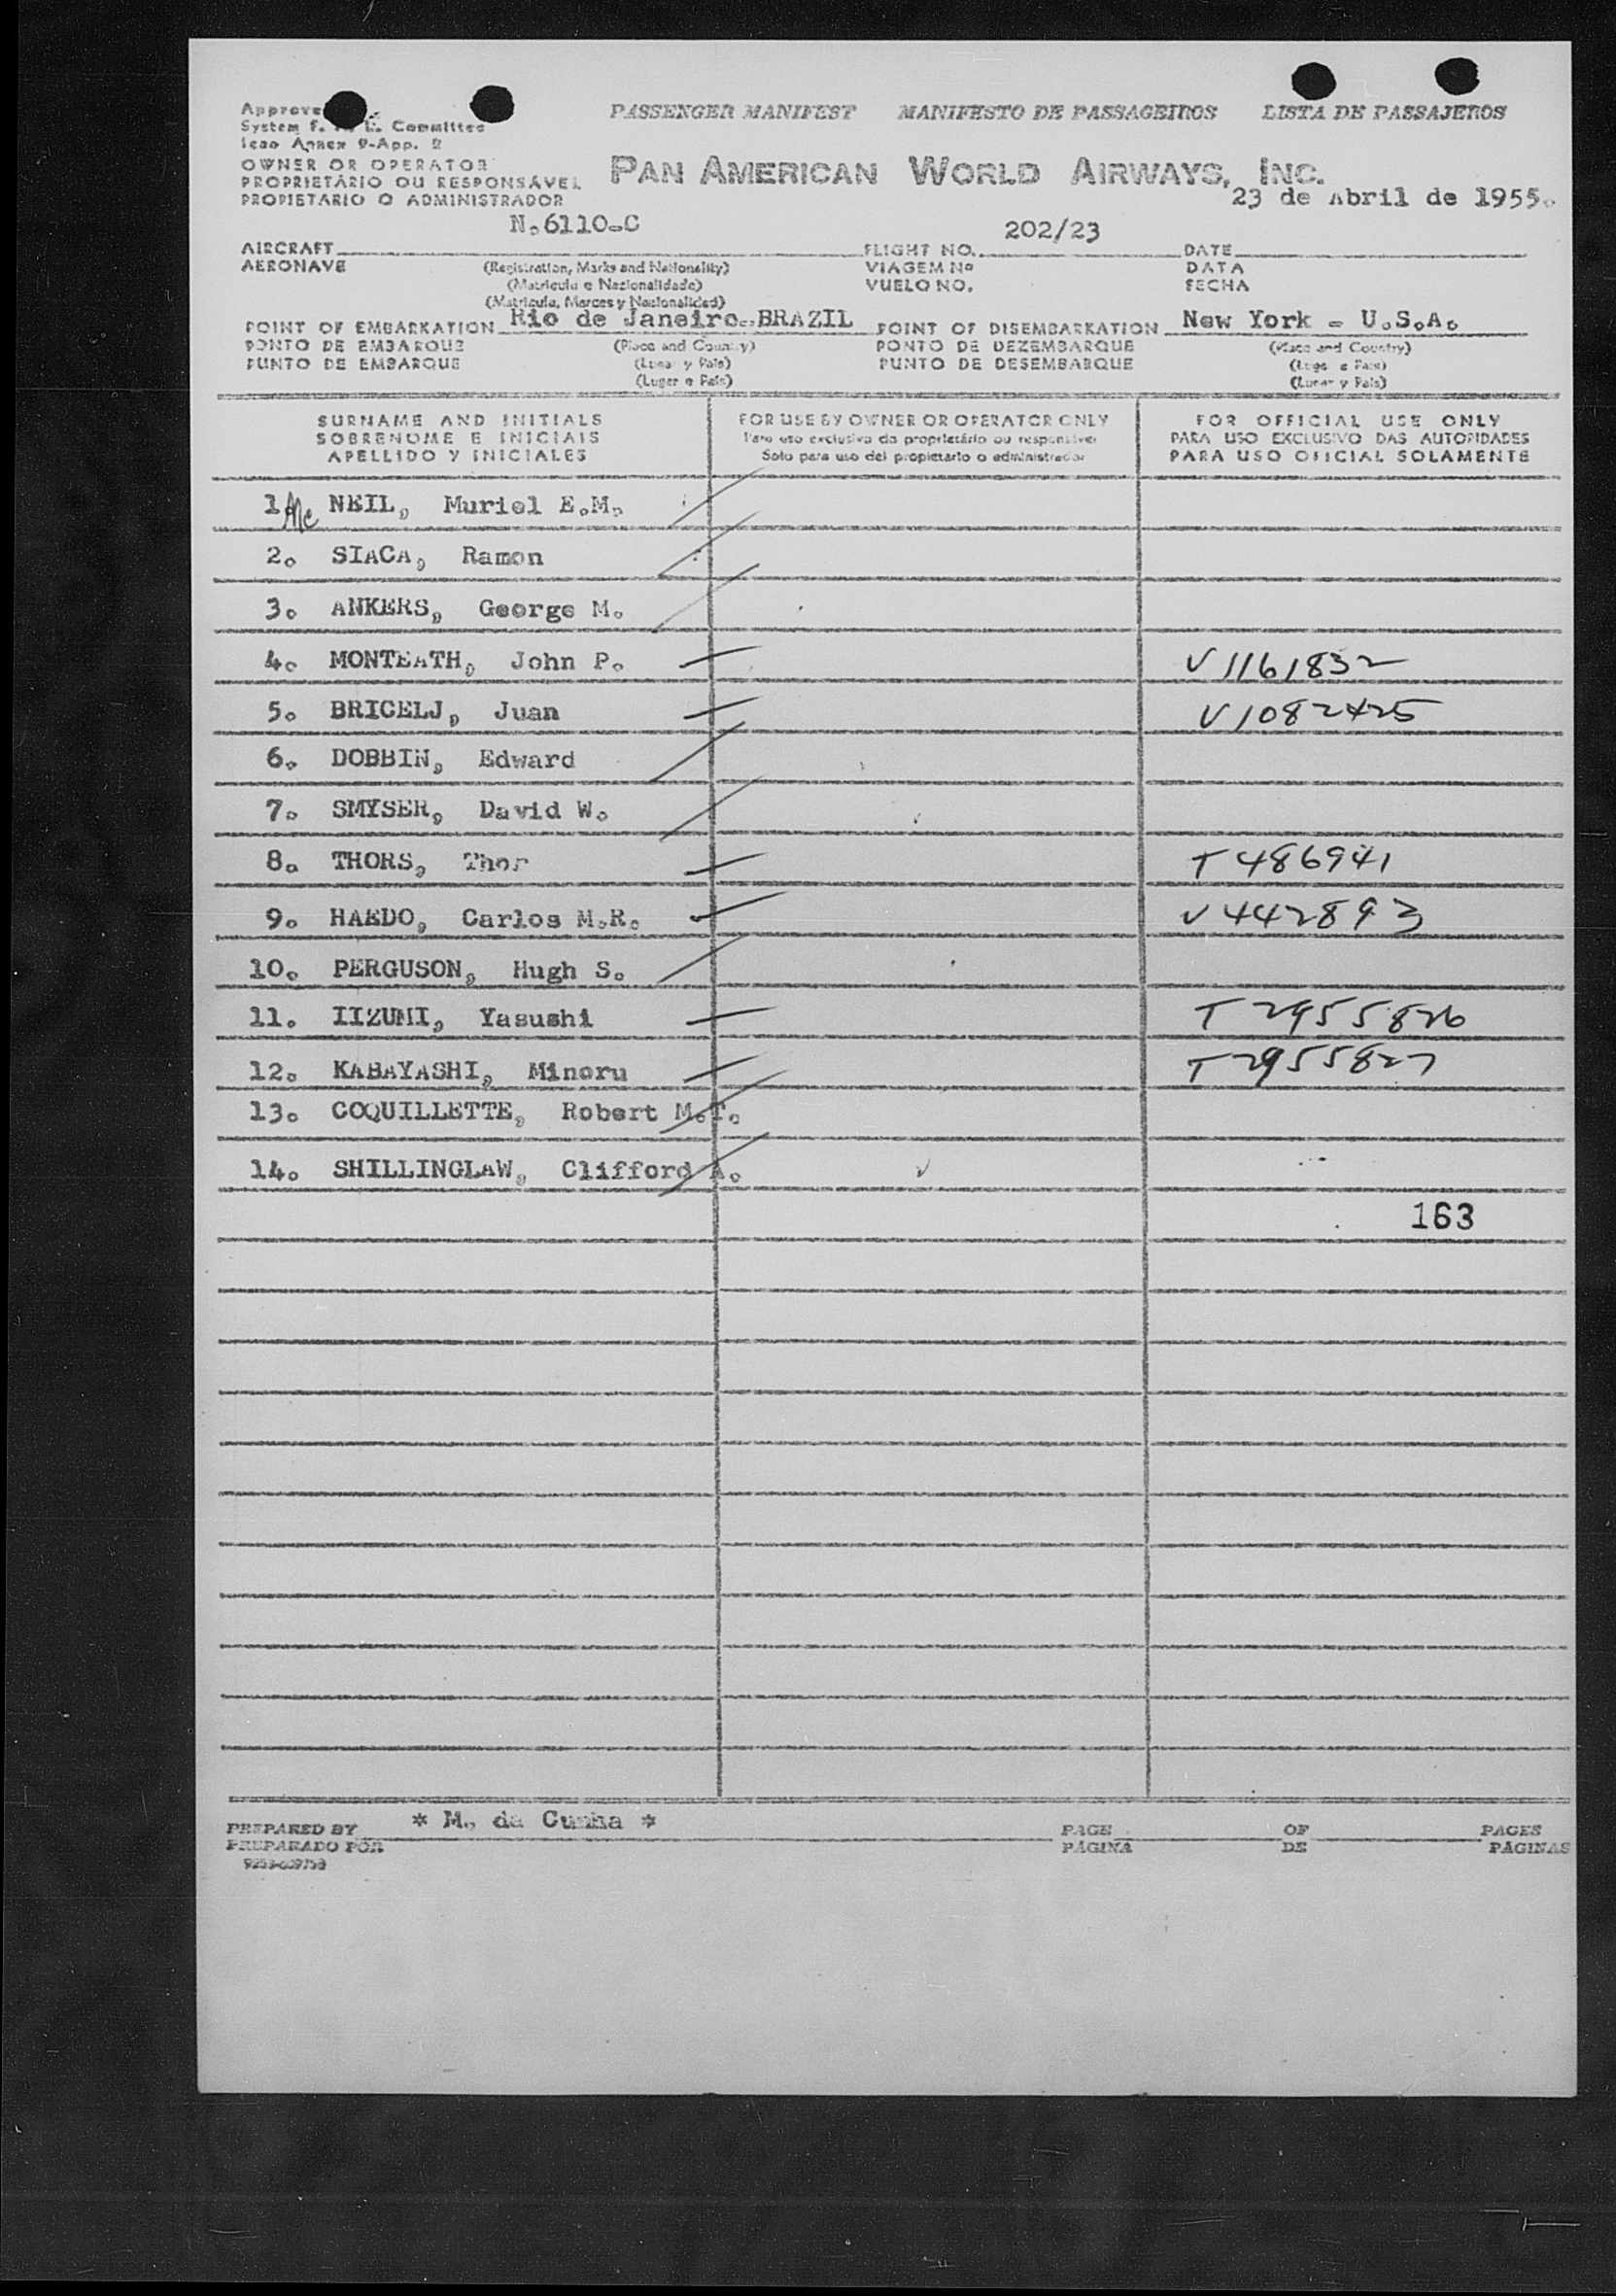 PASSENGER MANIFEST MANIFESTO DE PASSAGEIROS LISTA DE PASSAJEROS
System F. A. L. Committee
Icao Annex 9-App. 2
OWNER OR OPERATOR
PROPRIETÁRIO OU RESPONSÁVEL
PROPIETARIO O ADMINISTRADOR
PAN AMERICAN WORLD AIRWAYS, INC.
23 de Abril de 1955.
N.6110-C
202/23
AIRCRAFT FLIGHT NO. DATE
AERONAVE (Registration, Marks and Nationality) VIAGEM Nº DATA
(Matricula e Nacionalidade) VUELO NO. FECHA
(Matricula, Marcas y Nacionalidad)
POINT OF EMBARKATION Rio de Janeiro-BRAZIL POINT OF DISEMBARKATION New York - U.S.A.
PONTO DE EMBARQUE (Place and Country) PONTO DE DEZEMBARQUE (Place and Country)
PUNTO DE EMBARQUE (Lugar y Pais) PUNTO DE DESEMBARQUE (Lugar e Pais)
(Lugar e Pais) (Lugar y Pais)
SURNAME AND INITIALS FOR USE BY OWNER OR OPERATOR ONLY FOR OFFICIAL USE ONLY
SOBRENOME E INICIAIS Para uso exclusivo do proprietário ou responsável PARA USO EXCLUSIVO DAS AUTORIDADES
APELLIDO Y INICIALES Solo para uso del propietario o administrador PARA USO OFICIAL SOLAMENTE
1 Mc NEIL, Muriel E.M.
2. SIACA, Ramon
3. ANKERS, George M.
4. MONTEATH, John P. V1161832
5. BRICELJ, Juan V1082425
6. DOBBIN, Edward
7. SMYSER, David W.
8. THORS, Thor T486941
9. HAEDO, Carlos M.R. V442893
10. PERGUSON, Hugh S.
11. IIZUMI, Yasushi T2955826
12. KABAYASHI, Minoru T2955827
13. COQUILLETTE, Robert M.T.
14. SHILLINGLAW, Clifford A.
163
* M. da Cunha *
PREPARED BY PAGE OF PAGES
PREPARADO POR PÁGINA DE PÁGINAS